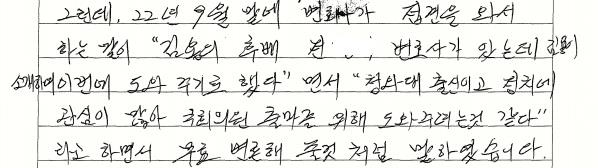 그런데, 22년 9월 말에 변호사가 접견을 와서
하는 말이 "김용의 후배 전..., 변호사가 있는데 김용이
소개하여 이번에 도와 주기로 했다" 면서 "청와대 출신이고 정치에
관심이 많아 국회의원 출마를 위해 도와주려는것 같다"
라고 하면서 무료 변론해 줄것 처럼 말하였습니다